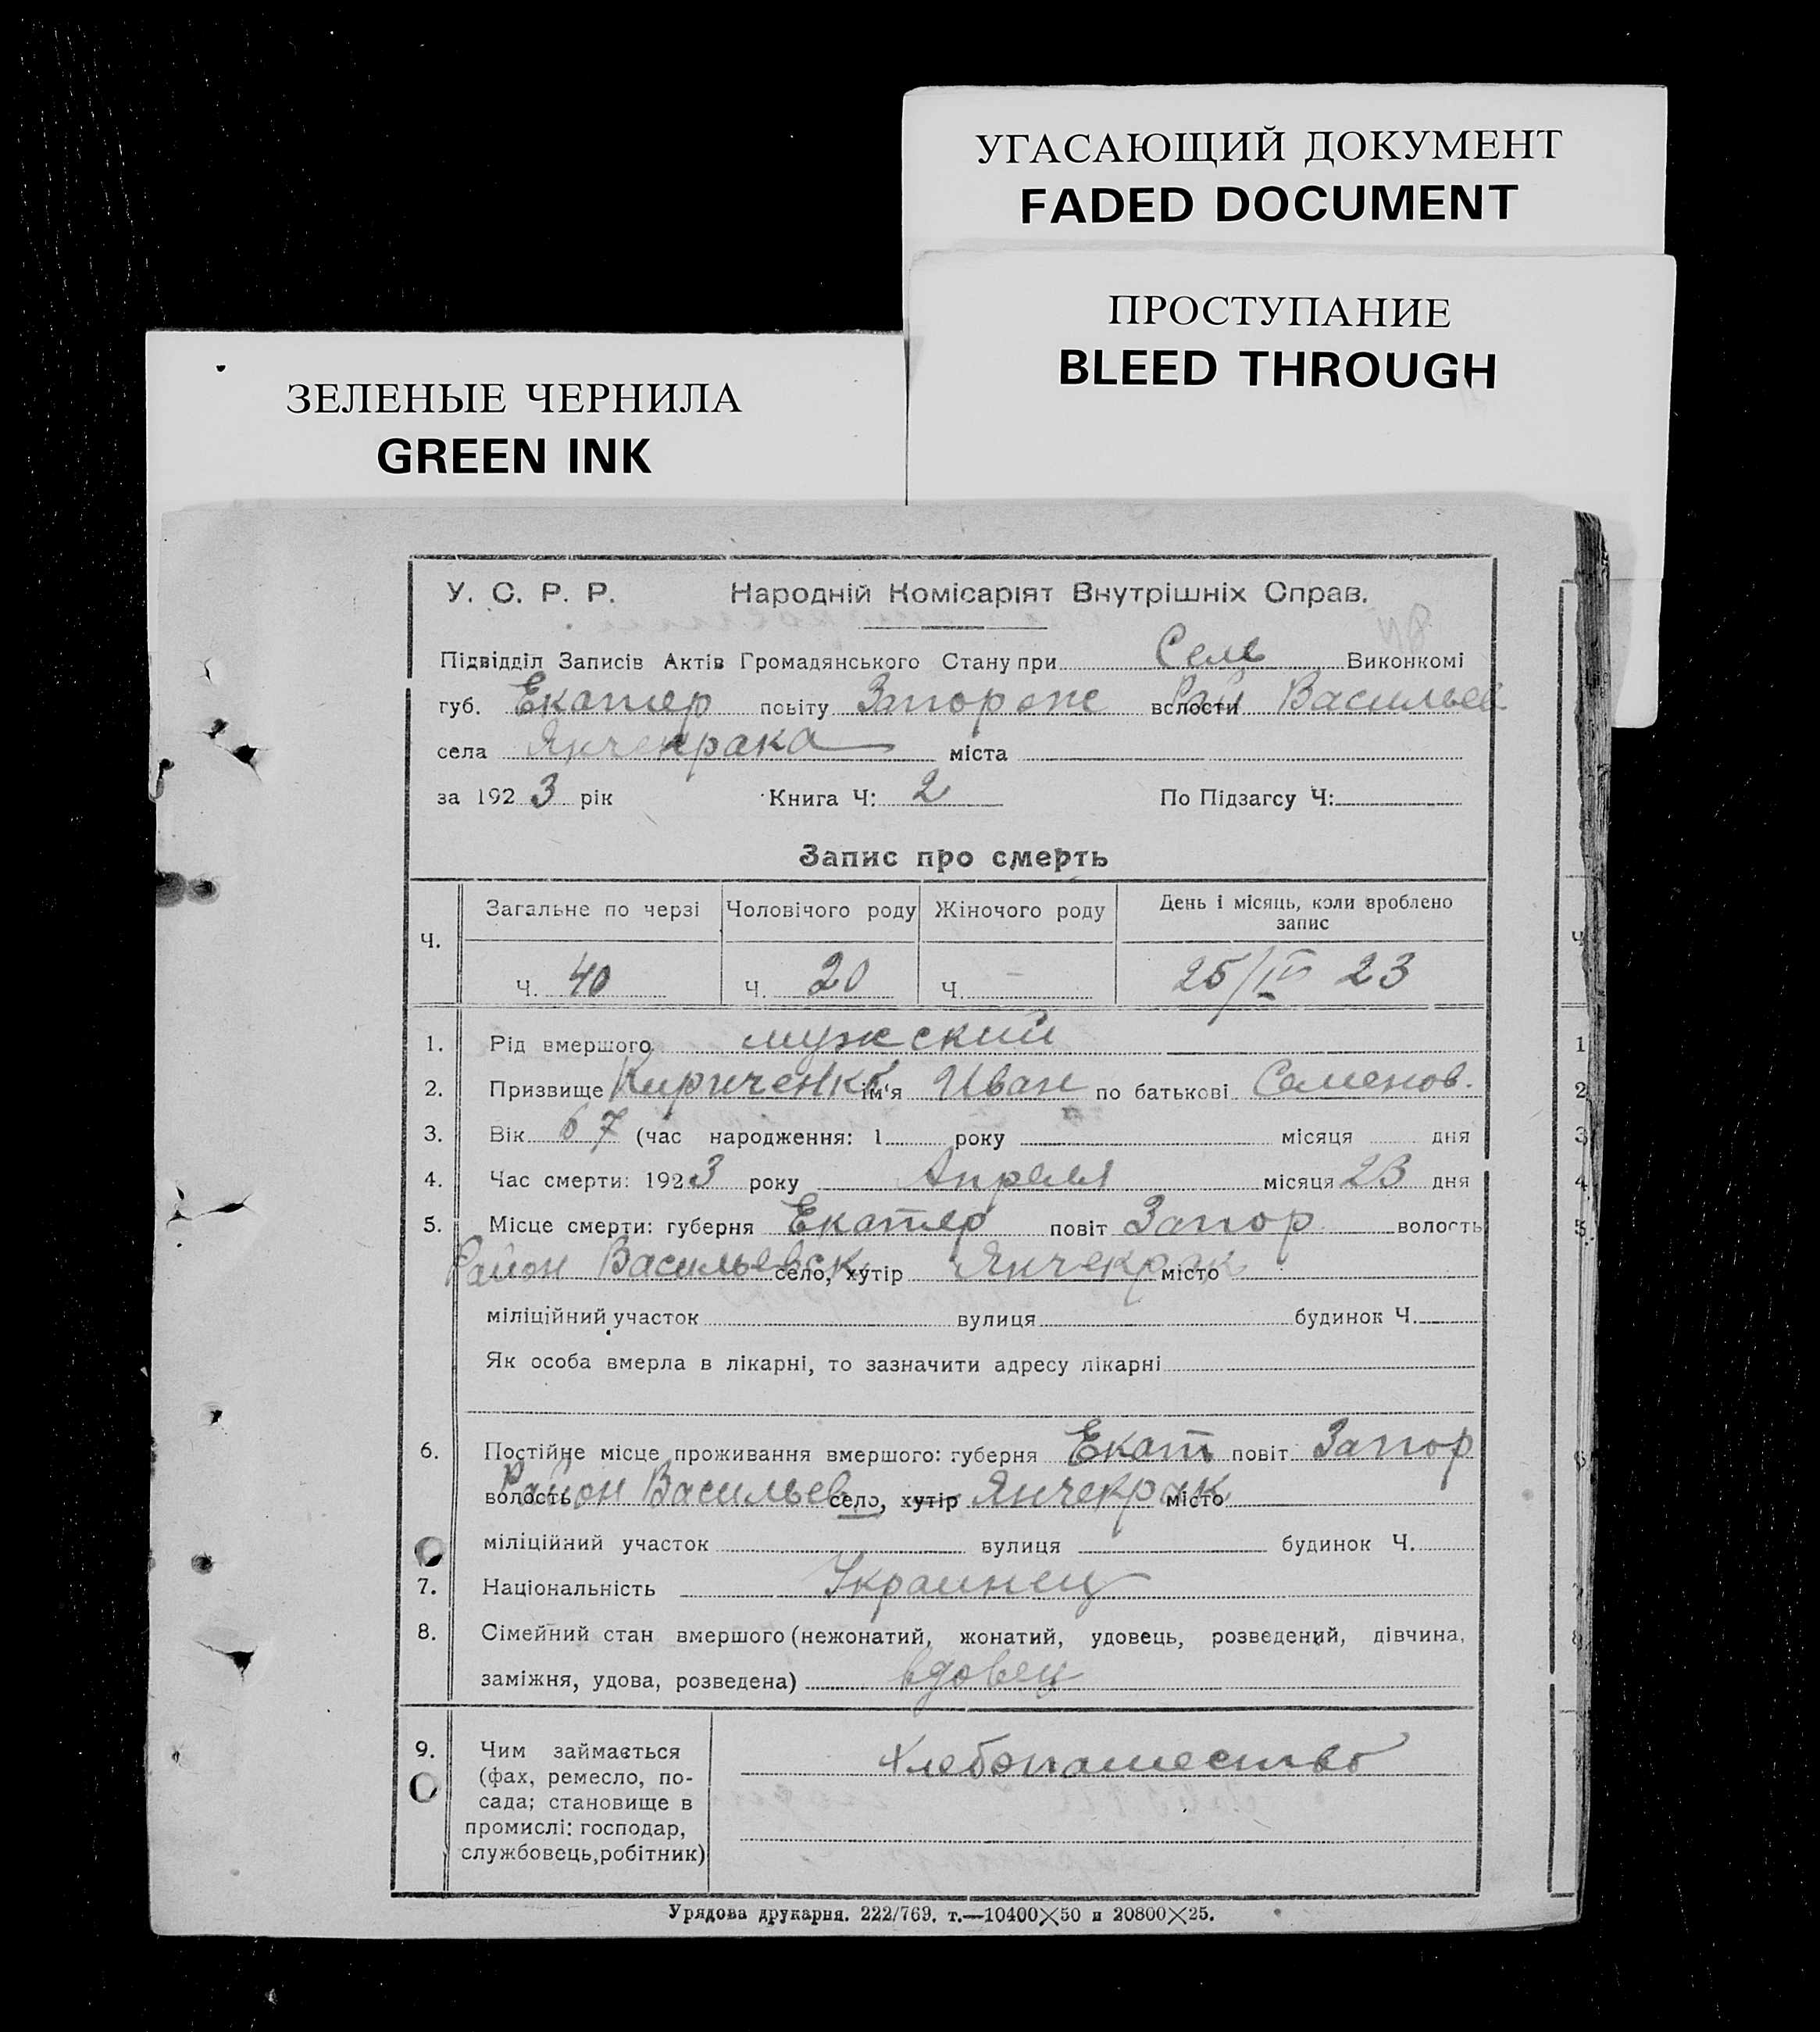 УГАСАЮЩИЙ ДОКУМЕНТ
FADED DOCUMENT
ПРОСТУПАНИЕ
BLEED THROUGH
ЗЕЛЕНЫЕ ЧЕРНИЛА
GREEN INK
У. С. Р. Р. Народній Комісаріят Внутрішніх Справ.
Підвідділ Записів Актів Громадянського Стану при Селе Виконкомі
губ. Екатер повіту Запорож волости Рай Васильев
села Янчекрака міста
за 1923 рік Книга Ч: 2 По Підзагсу Ч:
Запис про смерть
Ч. Загальне по черзі Чоловічого роду Жіночого роду День і місяць, коли вроблено запис
Ч. 40 Ч. 20 Ч. – 25/IV 23
1. Рід вмершого мужский
2. Призвище Кириченко ім‘я Иван по батькові Семенов.
3. Вік 67 (час народження: 1 року місяця дня
4. Час смерти: 1923 року Апреля місяця 23 дня
5. Місце смерти: губерня Екатер повіт Запор волость
Район Васильевск село, хутір Янчекрак місто
міліційний участок вулиця будинок Ч.
Як особа вмерла в лікарні, то зазначити адресу лікарні
6. Постійне місце проживання вмершого: губерня Екат повіт Запор
волость Район Васильев село, хутір Янчекрак місто
міліційний участок вулиця будинок Ч.
7. Національність Украинец
8. Сімейний стан вмершого (нежонатий, жонатий, удовець, розведений, дівчина,
заміжня, удова, розведена) вдовец
9. Чим займається Хлебопашество
(фах, ремесло, по-
сада; становище в
промислі: господар,
службовець, робітник)
Урядова друкарня. 222/769. т.—10400×50 и 20800×25.